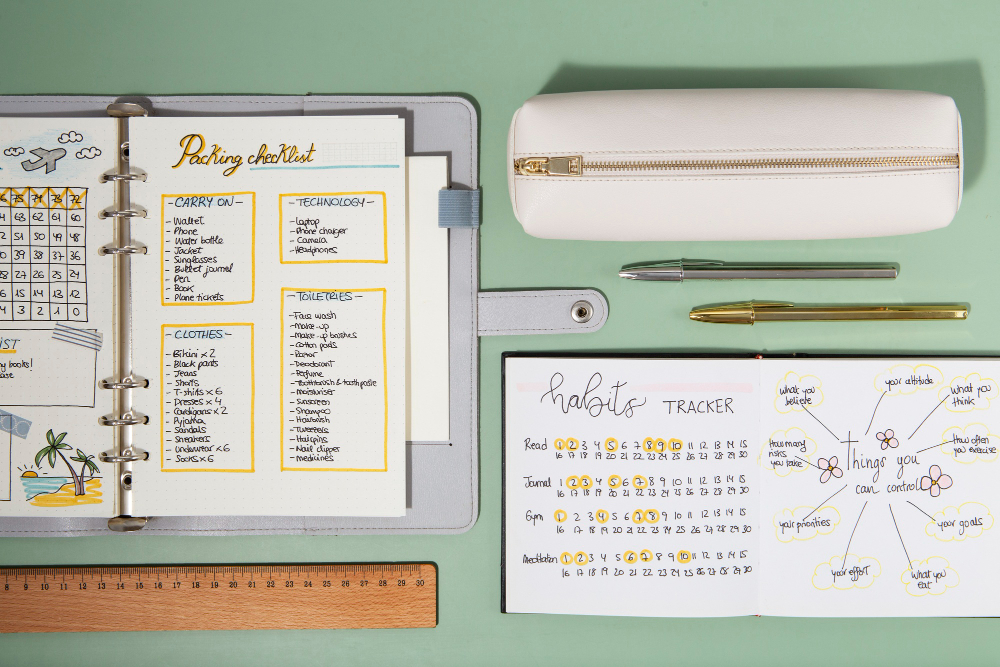 75 74 73 72
63 62 61 60
52 51 50 49 48
39 38 37 36
28 27 26 25 24
16 15 14 13 12
4 3 2 1 0
books!
Packing checklist
- CARRY ON -
- Wallet
- Phone
- Water bottle
- Jacket
- Sunglasses
- Bullet journal
- Pen
- Book
- Plane tickets
- CLOTHES -
- Bikini x 2
- Black pants
- Jeans
- Shorts
- T-shirts x 6
- Dresses x 4
- Cardigans x 2
- Pyjama
- Sandals
- Sneakers
- Underwear x 6
- Socks x 6
- TECHNOLOGY -
- Laptop
- Phone charger
- Camera
- Headphones
- TOILETRIES -
- Face wash
- Make-up
- Make-up brushes
- Cotton pads
- Razor
- Deodorant
- Perfume
- Toothbrush & toothpaste
- Moisturiser
- Sunscreen
- Shampoo
- Hairbrush
- Tweezers
- Hairpins
- Nail clipper
- Medicines
8 9 10 11 12 13 14 15 16 17 18 19 20 21 22 23 24 25 26 27 28 29 30
habits TRACKER
Read 1 2 3 4 5 6 7 8 9 10 11 12 13 14 15
16 17 18 19 20 21 22 23 24 25 26 27 28 29 30
Journal 1 2 3 4 5 6 7 8 9 10 11 12 13 14 15
16 17 18 19 20 21 22 23 24 25 26 27 28 29 30
Gym 1 2 3 4 5 6 7 8 9 10 11 12 13 14 15
16 17 18 19 20 21 22 23 24 25 26 27 28 29 30
Meditation 1 2 3 4 5 6 7 8 9 10 11 12 13 14 15
16 17 18 19 20 21 22 23 24 25 26 27 28 29 30
what you
believe
your attitude
what you
think
How many
risks
you take
How often
you exercise
Things you
can control
your priorities
your goals
your effort
what you
eat